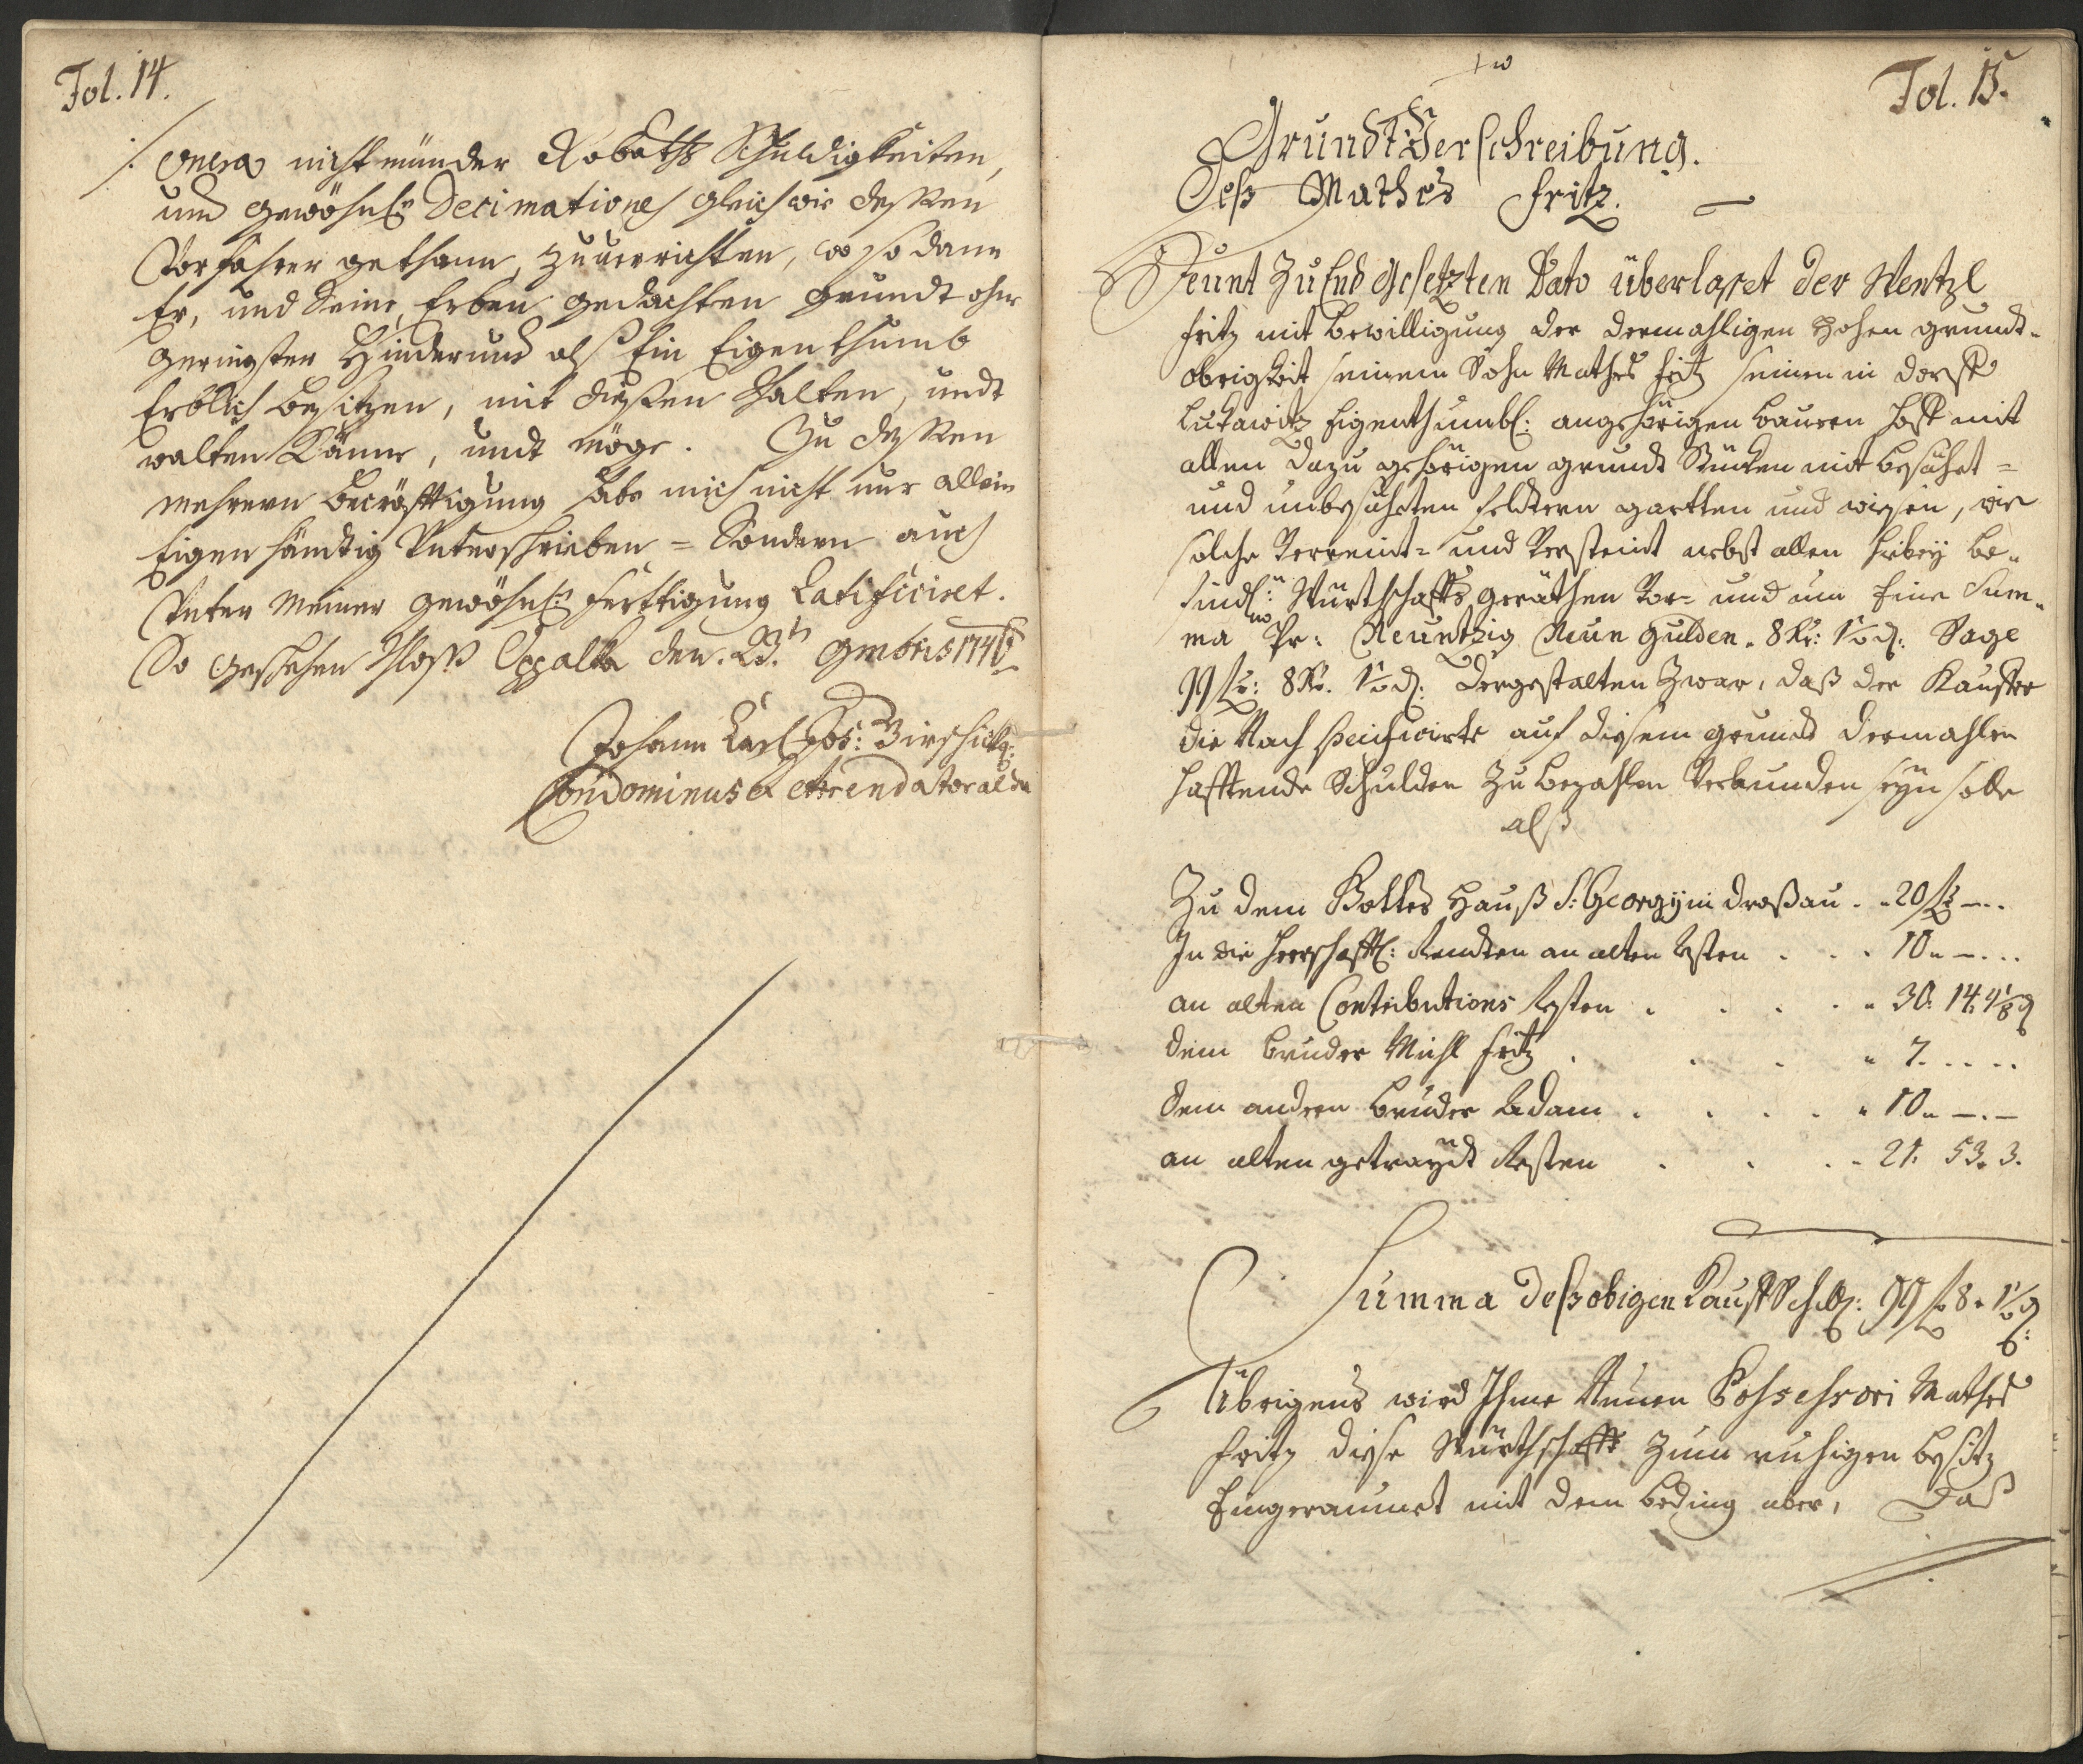 Fol. 14.
/: onera nicht münder Robaths Schuldigkeiten,
und gewöhnl: Decimationes gleich wie dessen
Vorfahrer gethann, zuuerrichten, so dann
Er, und Seine Erben gedachten grundt ohne
geringsten Hindernus alß Ein Eigenthumb
Erblich besitzen, mit diesen schalten, undt
walten Könne, undt möge. Zu dessen
mehrern becräfftigung habe mich nicht nur allein
Eigenhändtig Unterschrieben = Sondern auch
Unter Meiner gewöhnl: ferttigung Ratificiret.
So geschehen Schloß Oppalka den 23. 9mbris 1746
Johann Carl Jos:
Condominus &
Fol. 15.
Grundt Verschreibung.
Deß Mathes Fritz.
Heunt Zu End Gesetzten Dato überlasset der Wentzl
Fritz mit bewilligung der dermahligen Hohen grundt-
obrigkeit seinem Sohn Mathes Fritz seinen in dorff
Lukawitz Eigenthumbl: angehörigen bauern Hoff mit
allen dazu gehörigen grundt Stücken mit besähet =
und unbesäheten feldtern gartten und wiesen, wie
solche Verreint= und Versteint nebst allen hirbey be-
findl: Würthschaffts geräthen Vor= und um Eine Sum-
ma Pr: Neuntzig Neun Gulden. 8 Kr: 1½ d: Sage
99 f: 8 Kr. 1½ d: dergestalten Zwar, daß der Kauffer
die Nach specificirte auf diesem grundt dermahlen
hafftende Schulden Zu bezahlen Verbunden seyn solle
alß
Zu dem Gottes Hauß S: Georgy in droßau . . 20 f — . .
In die Herrschafftl: Rendten an alten Resten . . . 10 „ — . . .
an alten Contributions Resten . . . . „ 30. 14. 4½ d
dem bruder Michl Fritz . . . „ 7. . . . .
dem andern bruder Adam . . . . „ 10 „ — . —
an alten getraydt Resten . . . . 21. 53. 3.
Summa deß obigen Kauff Schill: 99 f 8 „ 1½ d:
Übrigens wird Ihme Neuen Possessori Mathes
Fritz diese Würthschafft zum ruhigen besitz
Eingeraumet mit dem beding aber, daß